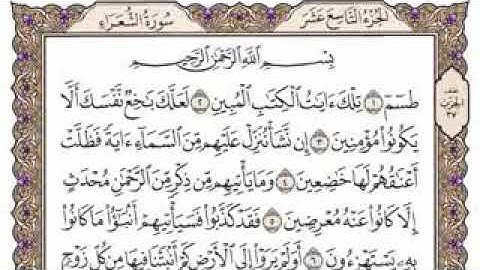 الجزء التاسع عشر
سورة الشعراء
بِسْمِ اللَّهِ الرَّحْمَٰنِ الرَّحِيمِ
طسٓمٓ ١ تِلْكَ ءَايَٰتُ ٱلْكِتَٰبِ ٱلْمُبِينِ ٢ لَعَلَّكَ بَٰخِعٌ نَّفْسَكَ أَلَّا
يَكُونُوا۟ مُؤْمِنِينَ ٣ إِن نَّشَأْ نُنَزِّلْ عَلَيْهِم مِّنَ ٱلسَّمَآءِ ءَايَةً فَظَلَّتْ
أَعْنَٰقُهُمْ لَهَا خَٰضِعِينَ ٤ وَمَا يَأْتِيهِم مِّن ذِكْرٍ مِّنَ ٱلرَّحْمَٰنِ مُحْدَثٍ
إِلَّا كَانُوا۟ عَنْهُ مُعْرِضِينَ ٥ فَقَدْ كَذَّبُوا۟ فَسَيَأْتِيهِمْ أَنۢبَٰٓؤُا۟ مَا كَانُوا۟
بِهِۦ يَسْتَهْزِءُونَ ٦ أَوَلَمْ يَرَوْا۟ إِلَى ٱلْأَرْضِ كَمْ أَنۢبَتْنَا فِيهَا مِن كُلِّ زَوْجٍ
نصف
الحزب
٣٧